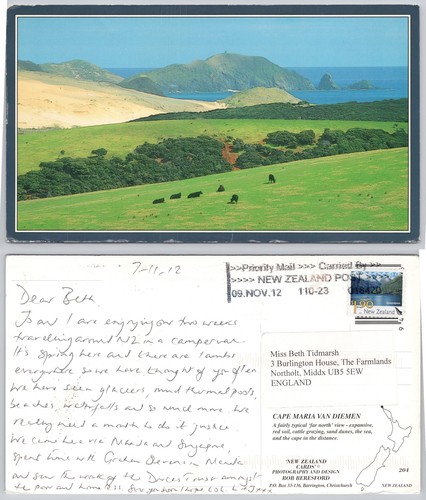 7-11.12
Dear Beth
Jo and I are enjoying our two weeks
travelling around NZ in a campervan.
It's Spring here and there are lambs
everywhere so we have thought of you often
We have seen glaciers, mud thermal pools,
beaches, waterfalls and so much more. We
really need a month to do it justice.
We came here via Manila and Singapore,
spent time with Graham in Manila
and saw the work of the Trust amongst
the poor and homeless.
>>Priority Mail >>> Carried By >>
>>>> NEW ZEALAND POST >>>>
09.NOV.12 110-23 018420
1.90
New Zealand
Miss Beth Tidmarsh
3 Burlington House, The Farmlands
Northolt, Middx UB5 5EW
ENGLAND
CAPE MARIA VAN DIEMEN
A fairly typical 'far north' view - expansive,
red soil, cattle grazing, sand dunes, the sea,
and the cape in the distance.
'NEW ZEALAND
CARDS'
PHOTOGRAPHY AND DESIGN
BOB HERESFORD
P.O. Box 33-136, Barrington, Christchurch
204